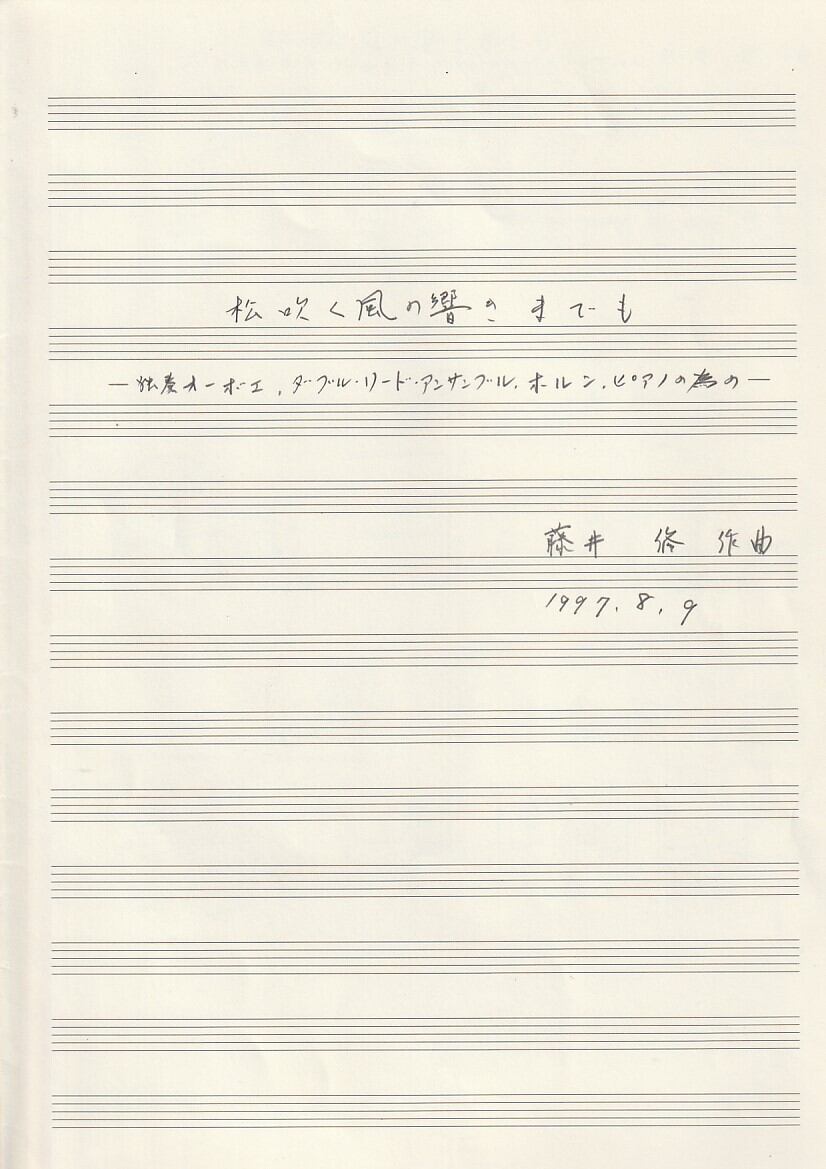 松吹く風の響きまでも
—独奏オーボエ, ダブル・リード・アンサンブル, ホルン, ピアノの為の—
藤井 修 作曲
1997. 8. 9